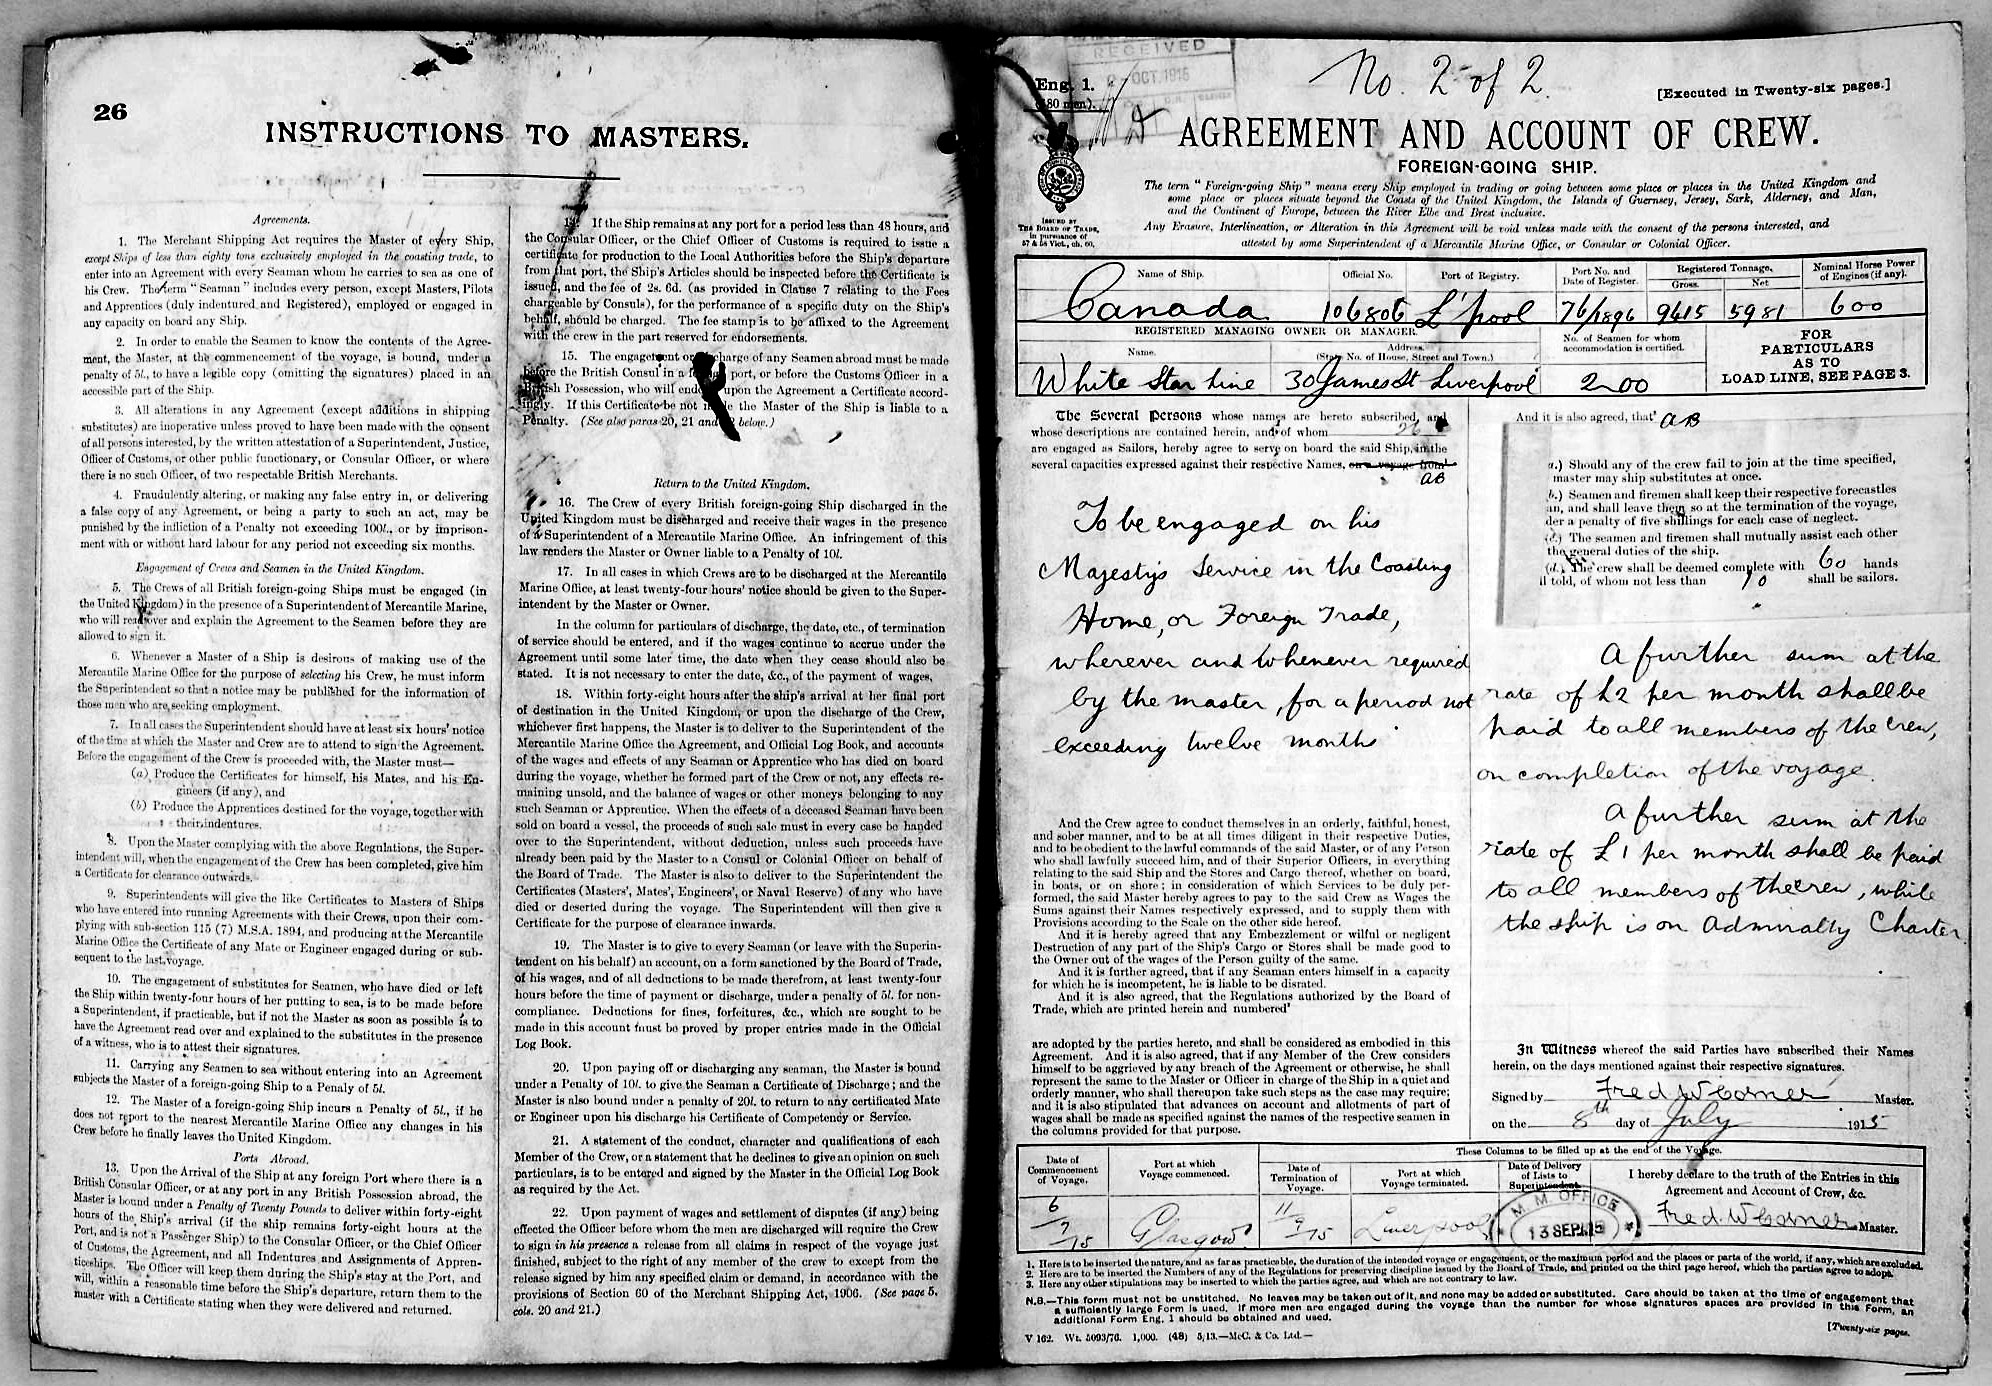 26
INSTRUCTIONS TO MASTERS.
Agreements.
1. The Merchant Shipping Act requires the Master of every Ship,
except Ships of less than eighty tons exclusively employed in the coasting trade, to
enter into an Agreement with every Seaman whom he carries to sea as one of
his Crew. The term "Seaman" includes every person, except Masters, Pilots
and Apprentices (duly indentured and Registered), employed or engaged in
any capacity on board any Ship.
2. In order to enable the Seamen to know the contents of the Agree-
ment, the Master, at the commencement of the voyage, is bound, under a
penalty of 5l., to have a legible copy (omitting the signatures) placed in an
accessible part of the Ship.
3. All alterations in any Agreement (except additions in shipping
substitutes) are inoperative unless proved to have been made with the consent
of all persons interested, by the written attestation of a Superintendent, Justice,
Officer of Customs, or other public functionary, or Consular Officer, or where
there is no such Officer, of two respectable British Merchants.
4. Fraudulently altering, or making any false entry in, or delivering
a false copy of any Agreement, or being a party to such an act, may be
punished by the infliction of a Penalty not exceeding 100l., or by imprison-
ment with or without hard labour for any period not exceeding six months.
Engagement of Crews and Seamen in the United Kingdom.
5. The Crews of all British foreign-going Ships must be engaged (in
the United Kingdom) in the presence of a Superintendent of Mercantile Marine,
who will read over and explain the Agreement to the Seamen before they are
allowed to sign it.
6. Whenever a Master of a Ship is desirous of making use of the
Mercantile Marine Office for the purpose of selecting his Crew, he must inform
the Superintendent so that a notice may be published for the information of
those men who are seeking employment.
7. In all cases the Superintendent should have at least six hours' notice
of the time at which the Master and Crew are to attend to sign the Agreement.
Before the engagement of the Crew is proceeded with, the Master must—
(a) Produce the Certificates for himself, his Mates, and his En-
gineers (if any), and
(b) Produce the Apprentices destined for the voyage, together with
their indentures.
8. Upon the Master complying with the above Regulations, the Super-
intendent will, when the engagement of the Crew has been completed, give him
a Certificate for clearance outwards.
9. Superintendents will give the like Certificates to Masters of Ships
who have entered into running Agreements with their Crews, upon their com-
plying with sub-section 115 (7) M.S.A. 1894, and producing at the Mercantile
Marine Office the Certificate of any Mate or Engineer engaged during or sub-
sequent to the last voyage.
10. The engagement of substitutes for Seamen, who have died or left
the Ship within twenty-four hours of her putting to sea, is to be made before
a Superintendent, if practicable, but if not the Master as soon as possible is to
have the Agreement read over and explained to the substitutes in the presence
of a witness, who is to attest their signatures.
11. Carrying any Seamen to sea without entering into an Agreement
subjects the Master of a foreign-going Ship to a Penaly of 5l.
12. The Master of a foreign-going Ship incurs a Penalty of 5l., if he
does not report to the nearest Mercantile Marine Office any changes in his
Crew before he finally leaves the United Kingdom.
Ports Abroad.
13. Upon the Arrival of the Ship at any foreign Port where there is a
British Consular Officer, or at any port in any British Possession abroad, the
Master is bound under a Penalty of Twenty Pounds to deliver within forty-eight
hours of the Ship's arrival (if the ship remains forty-eight hours at the
Port, and is not a Passenger Ship) to the Consular Officer, or the Chief Officer
of Customs, the Agreement, and all Indentures and Assignments of Appren-
ticeships. The Officer will keep them during the Ship's stay at the Port, and
will, within a reasonable time before the Ship's departure, return them to the
master with a Certificate stating when they were delivered and returned.
If the Ship remains at any port for a period less than 48 hours, and
the Consular Officer, or the Chief Officer of Customs is required to issue a
certificate for production to the Local Authorities before the Ship's departure
from that port, the Ship's Articles should be inspected before the Certificate is
issued, and the fee of 2s. 6d. (as provided in Clause 7 relating to the Fees
chargeable by Consuls), for the performance of a specific duty on the Ship's
behalf, should be charged. The fee stamp is to be affixed to the Agreement
with the crew in the part reserved for endorsements.
15. The engagement or discharge of any Seamen abroad must be made
before the British Consul in a port, or before the Customs Officer in a
British Possession, who will endorse upon the Agreement a Certificate accord-
ingly. If this Certificate be not made the Master of the Ship is liable to a
Penalty. (See also paras 20, 21 and 22 below.)
Return to the United Kingdom.
16. The Crew of every British foreign-going Ship discharged in the
United Kingdom must be discharged and receive their wages in the presence
of a Superintendent of a Mercantile Marine Office. An infringement of this
law renders the Master or Owner liable to a Penalty of 10l.
17. In all cases in which Crews are to be discharged at the Mercantile
Marine Office, at least twenty-four hours' notice should be given to the Super-
intendent by the Master or Owner.
In the column for particulars of discharge, the date, etc., of termination
of service should be entered, and if the wages continue to accrue under the
Agreement until some later time, the date when they cease should also be
stated. It is not necessary to enter the date, &c., of the payment of wages.
18. Within forty-eight hours after the ship's arrival at her final port
of destination in the United Kingdom, or upon the discharge of the Crew,
whichever first happens, the Master is to deliver to the Superintendent of the
Mercantile Marine Office the Agreement, and Official Log Book, and accounts
of the wages and effects of any Seaman or Apprentice who has died on board
during the voyage, whether he formed part of the Crew or not, any effects re-
maining unsold, and the balance of wages or other moneys belonging to any
such Seaman or Apprentice. When the effects of a deceased Seaman have been
sold on board a vessel, the proceeds of such sale must in every case be handed
over to the Superintendent, without deduction, unless such proceeds have
already been paid by the Master to a Consul or Colonial Officer on behalf of
the Board of Trade. The Master is also to deliver to the Superintendent the
Certificates (Masters', Mates', Engineers', or Naval Reserve) of any who have
died or deserted during the voyage. The Superintendent will then give a
Certificate for the purpose of clearance inwards.
19. The Master is to give to every Seaman (or leave with the Superin-
tendent on his behalf) an account, on a form sanctioned by the Board of Trade,
of his wages, and of all deductions to be made therefrom, at least twenty-four
hours before the time of payment or discharge, under a penalty of 5l. for non-
compliance. Deductions for fines, forfeitures, &c., which are sought to be
made in this account must be proved by proper entries made in the Official
Log Book.
20. Upon paying off or discharging any seaman, the Master is bound
under a Penalty of 10l. to give the Seaman a Certificate of Discharge; and the
Master is also bound under a penalty of 20l. to return to any certificated Mate
or Engineer upon his discharge his Certificate of Competency or Service.
21. A statement of the conduct, character and qualifications of each
Member of the Crew, or a statement that he declines to give an opinion on such
particulars, is to be entered and signed by the Master in the Official Log Book
as required by the Act.
22. Upon payment of wages and settlement of disputes (if any) being
effected the Officer before whom the men are discharged will require the Crew
to sign in his presence a release from all claims in respect of the voyage just
finished, subject to the right of any member of the crew to except from the
release signed by him any specified claim or demand, in accordance with the
provisions of Section 60 of the Merchant Shipping Act, 1906. (See page 5,
cols. 20 and 21.)
RECEIVED
OCT. 1915
Eng. 1.
No. 2 of 2.
[Executed in Twenty-six pages.]
AGREEMENT AND ACCOUNT OF CREW.
FOREIGN-GOING SHIP.
ISSUED BY
THE BOARD OF TRADE,
in pursuance of
57 & 58 Vict., ch. 60.
The term "Foreign-going Ship" means every Ship employed in trading or going between some place or places in the United Kingdom and
some place or places situate beyond the Coasts of the United Kingdom, the Islands of Guernsey, Jersey, Sark, Alderney, and Man,
and the Continent of Europe, between the River Elbe and Brest inclusive.
Any Erasure, Interlineation, or Alteration in this Agreement will be void unless made with the consent of the persons interested, and
attested by some Superintendent of a Mercantile Marine Office, or Consular or Colonial Officer.
Name of Ship. Official No. Port of Registry. Port No. and Date of Register. Registered Tonnage. Gross. Net Nominal Horse Power of Engines (if any).
Canada 106806 L'pool 76/1896 9415 5981 600
REGISTERED MANAGING OWNER OR MANAGER.
Name. Address. (State No. of House, Street and Town.) No. of Seamen for whom accommodation is certified.
White Star Line 30 James St Liverpool 200
FOR
PARTICULARS
AS TO
LOAD LINE, SEE PAGE 3.
The Several Persons whose names are hereto subscribed, and
whose descriptions are contained herein, and of whom 26
are engaged as Sailors, hereby agree to serve on board the said Ship, in the
several capacities expressed against their respective Names, on a voyage from
AB
To be engaged on his
Majesty's Service in the Coasting
Home, or Foreign Trade,
wherever and whenever required
by the master, for a period not
exceeding twelve months
And the Crew agree to conduct themselves in an orderly, faithful, honest,
and sober manner, and to be at all times diligent in their respective Duties,
and to be obedient to the lawful commands of the said Master, or of any Person
who shall lawfully succeed him, and of their Superior Officers, in everything
relating to the said Ship and the Stores and Cargo thereof, whether on board,
in boats, or on shore; in consideration of which Services to be duly per-
formed, the said Master hereby agrees to pay to the said Crew as Wages the
Sums against their Names respectively expressed, and to supply them with
Provisions according to the Scale on the other side hereof.
And it is hereby agreed that any Embezzlement or wilful or negligent
Destruction of any part of the Ship's Cargo or Stores shall be made good to
the Owner out of the wages of the Person guilty of the same.
And it is further agreed, that if any Seaman enters himself in a capacity
for which he is incompetent, he is liable to be disrated.
And it is also agreed, that the Regulations authorized by the Board of
Trade, which are printed herein and numbered
are adopted by the parties hereto, and shall be considered as embodied in this
Agreement. And it is also agreed, that if any Member of the Crew considers
himself to be aggrieved by any breach of the Agreement or otherwise, he shall
represent the same to the Master or Officer in charge of the Ship in a quiet and
orderly manner, who shall thereupon take such steps as the case may require;
and it is also stipulated that advances on account and allotments of part of
wages shall be made as specified against the names of the respective seamen in
the columns provided for that purpose.
And it is also agreed, that AB
a.) Should any of the crew fail to join at the time specified,
master may ship substitutes at once.
b.) Seamen and firemen shall keep their respective forecastles
an, and shall leave them so at the termination of the voyage,
der a penalty of five shillings for each case of neglect.
(c.) The seamen and firemen shall mutually assist each other
the general duties of the ship.
(d.) The crew shall be deemed complete with 60 hands
ll told, of whom not less than 10 shall be sailors.
A further sum at the
rate of £2 per month shall be
paid to all members of the crew,
on completion of the voyage.
A further sum at the
rate of £1 per month shall be paid
to all members of the crew, while
the ship is on Admiralty Charter.
In Witness whereof the said Parties have subscribed their Names
herein, on the days mentioned against their respective signatures.
Signed by Fred W Corner Master.
on the 8th day of July 1915
These Columns to be filled up at the end of the Voyage.
Date of Commencement of Voyage. Port at which Voyage commenced. Date of Termination of Voyage. Port at which Voyage terminated. Date of Delivery of Lists to Superintendent. I hereby declare to the truth of the Entries in this Agreement and Account of Crew, &c.
6/7/15 Glasgow 11/9/15 Liverpool M. M. OFFICE 13 SEP. 15 Fred. W Corner Master.
1. Here is to be inserted the nature, and as far as practicable, the duration of the intended voyage or engagement, or the maximum period and the places or parts of the world, if any, which are excluded.
2. Here are to be inserted the Numbers of any of the Regulations for preserving discipline issued by the Board of Trade, and printed on the third page hereof, which the parties agree to adopt.
3. Here any other stipulations may be inserted to which the parties agree, and which are not contrary to law.
N.B.—This form must not be unstitched. No leaves may be taken out of it, and none may be added or substituted. Care should be taken at the time of engagement that
a sufficiently large Form is used. If more men are engaged during the voyage than the number for whose signatures spaces are provided in this Form, an
additional Form Eng. 1 should be obtained and used.
V 162. Wt. 5093/76. 1,000. (48) 5/13.—McC. & Co. Ltd.—
[Twenty-six pages.